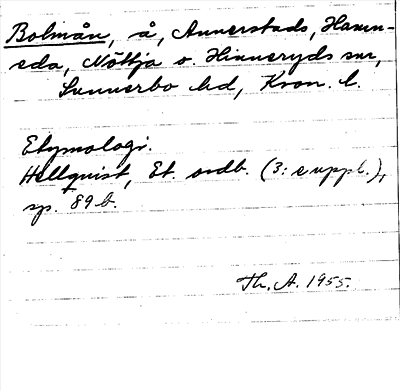 Bolmån, å, Annerstads, Hamn-
eda, Nöttja o. Hinneryds snr,
Sunnerbo hd, Kron. l.
Etymologi.
Hellquist, Et. ordb. (3: e uppl.),
sp. 89 b.
Th. A. 1955.